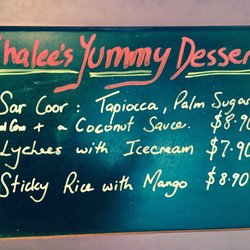 halee's Yummy Desser
Sar Coor : Tapiocca, Palm Sugar
+ a Coconut Sauce. $8.90
Lychees with Icecream $7.90
Sticky Rice with Mango $8.90